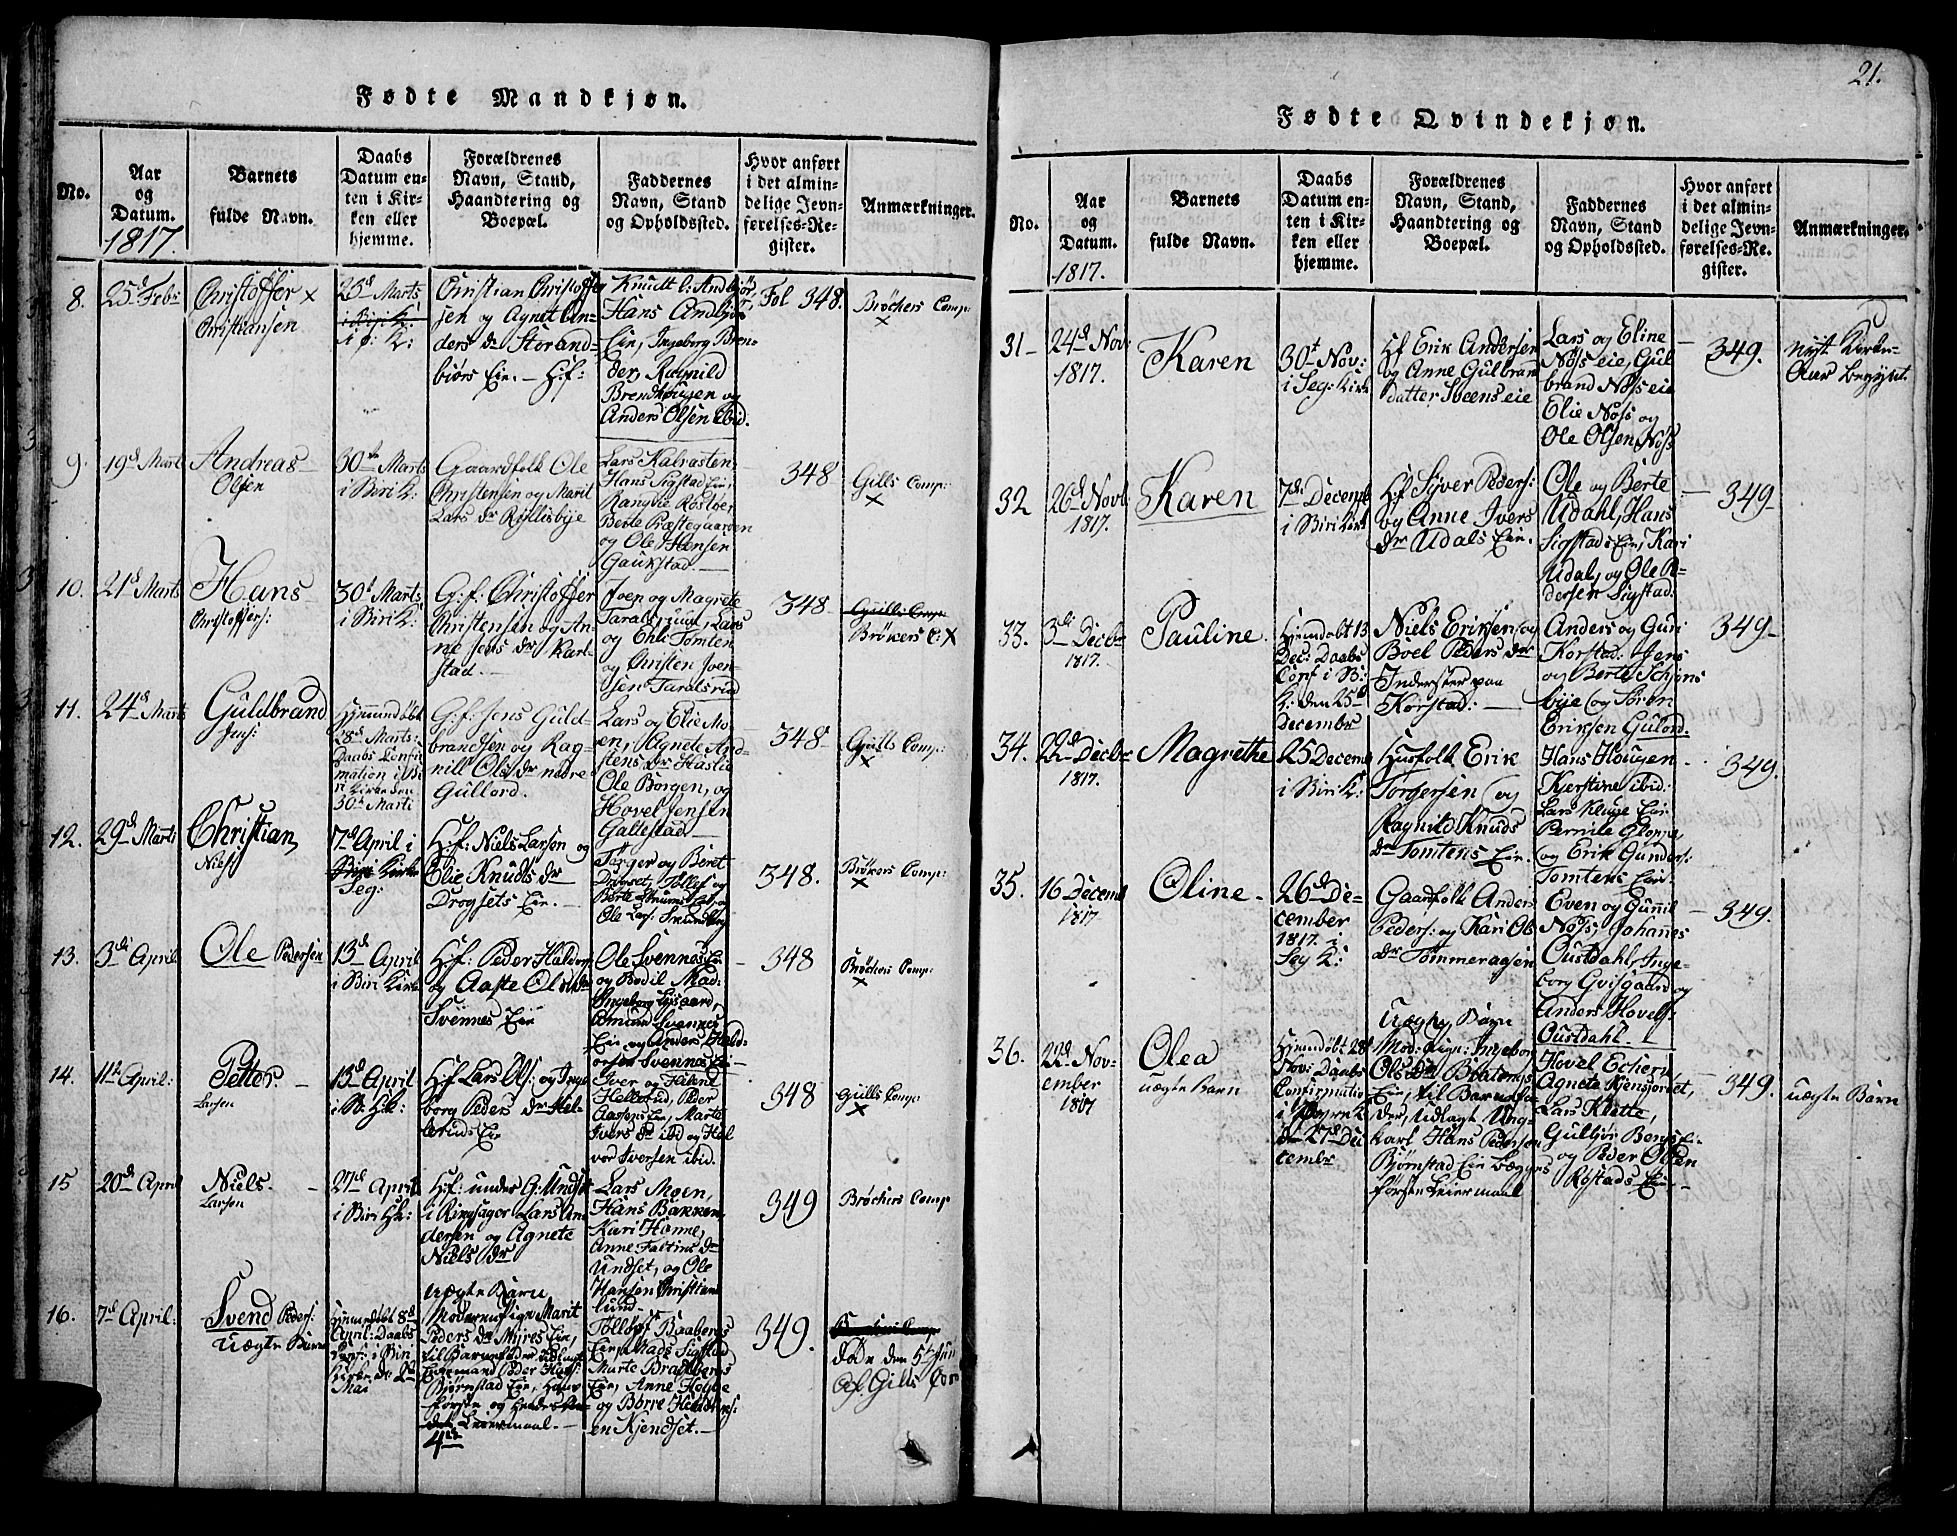 Fødte Mandkjøn.
No.
Aar
og
Datum.
1817.
Barnets
fulde Navn.
Daabs
Datum en-
ten i Kir-
ken eller
hjemme.
Forældrenes
Navn, Stand,
Haandtering og
Boepæl.
Faddernes
Navn, Stand
og Opholdssted.
Hvor anført
i det almin-
delige Jevn-
førelses-Re-
gister.
Anmærkninger.
8.
25d Febr
Christoffer x
Christiansen
25d Marts
Christian Christoffe
sen og Agnet An-
ders dr Storand-
biørs Eie. - H:f:
Hans Andbjør
Eie, Ingeborg Bren-
der, Ragnild
Brendhougen og
Anders Olsen ibid.
Fol 348.
Brøchers Comp:
x
9.
19d Mart
Andreas
Olsen
30te Marts
i Biri K:
Gaardfolk Ole
Christensen og Marit
Lars dr Ryllisbye
Lars Kalrasten,
Hans Sigstad Eie,
Berte Præstegaarden
og Ole Hensen
Gaukstad.
348
Gills Comp:
x
10.
21d Marts
Hans
Christoffers:
30t Marts
i Biri K:
G:f: Christoffer
Christensen og An-
ne Jens dr Karl-
stad.
Joen og Magrete
Taralsruud, Lars
og Ehle Tomten
og Christen Joen-
sen Taralsrud
348
Brøkers C: X
11.
24d Marts
Guldbrand
Jens:
Hjemmedøbt
28d Marts:
Daabs Confir
mation i Bi
ri Kirke den
30te Marti
G:f: Jens Guld-
brandsen og Rag-
nill Ols dr nedre
Gullord.
Lars og Elie Mo-
en, Agnete And-
stens dr Haslie
Ole Borgen, og
Hovel Jensen
Galtestad.
348
Gills Comp:
x
12.
29d Marti
Christian
Niels
7d April i
Biri Kirke
Seg:
H:f: Niels Larsen og
Elie Knuds dr
Drogsets Eie.
Torger og Beret
Ole Lars:
348.
Brøkers Comp:
x
13.
3di April
Ole Pedersen
13d April
i Biri Kirke
H:f: Peder Haldor
og Aaste Olsdr
Svennes Eie
Ole Svennes E:
og Bodil Mad:
Ingeborg Lysgaard,
Amund Svennes
Eie og Anders Hald-
orsen Svennes Eie
348
Brøchers Comp:
x
14.
11te April:
Petter
Larsen
13d April
i B: HK:
H:f: Lars Ols: og Inge
borg Peders dr Hel-
lerud Eie
Iver og Helene
Hellerud, Peder
Ivers dr ibd og Hal
vor Iversen ibid.
348
Gills Comp:
x
15
20d April
Niels
Larsen
27d April
i Biri HK:
H:f: under G: Undset
i Ringsager Lars An
dersen og Agnete
Niels dr
Lars Moen,
Hans Bakken,
Kari Honne,
Anne Faltins dr
Undset, og Ole
Hansen Christian
lund
349
Brøchers Comp
16.
7d April:
Svend Peders:
Uægte Barn
Hjemmedøbt 8d
April: Daabs
Conf: i Biri
Kirke d: 2d
Mai
Uægte Barn,
Moderen Pige Marit
Peders dr Myres Eie,
til Barnefader udlagt
Peder Hans:
Bjørnstad Eie, hans
første og hendes An-
det Leiermaal.
4de
Tollof Baabergs
Eie, Mads Sigstad
Marte Bratbergs
Eie, Anne Hegbe
og Børre Hendriks:
en Kjendset.
349.
døde den 5t Jun
Af Gills Com

21.
Fødte Qvindekjøn.
No.
Aar
og
Datum.
1817.
Barnets
fulde Navn.
Daabs
Datum en-
ten i Kir-
ken eller
hjemme.
Forældrenes
Navn, Stand,
Haandtering og
Boepæl.
Faddernes
Navn, Stand
og Opholdssted.
Hvor anført
i det almin-
delige Jevn-
førelses-Re-
gister.
Anmærkninger.
31
24d Nov:
1817.
Karen
30t Nov:
i Seg: Kirke
H:f Erik Andersen
og Anne Gulbran
datter Sveens eie
Lars og Eline
Nøss eie, Gul
brand Nøss eie
Elie Nøss og
Ole Olsen Nøss
349.
nyt Kirke-
Aar begynt.
32
26d Novb
1817.
Karen
7de Decemb
i Biri Kirke
H:f Syver Peders:
og Anne Ivers
dr Udals Eie.
Ole og Berte
Udahl, Hans
Sigstads Eie, Kari
Udal, og Ole P-
dersen Sigstad.
349
33.
3di Decbr
1817.
Pauline
Hjemdøbt 13
Dec: Daabs
Conf i Bi:
K: den 25d
December
Niels Eriksen og
Boel Peders dr
Inderster paa
Korstad:
Anders og Guri
Korstad: Jens
og Berte Schjøns
bye og Søren
Eriksen Gulord.
349
34.
22d Decbr
1817.
Magrethe
25 Decemb
i Biri K:
Husfolk Erik
Torgersen og
Ragnild Knuds
dr Tomtens Eie.
Hans Hougen
Kjerstine ibid:
Lars Kluge Eie
Pernile Gloppe,
og Erik Gunders:
Tomtens Eie.
349.
35.
16 Decemb
1817
Oline
26d De-
cember
1817. i
Seg K:
Gaardfolk Anders
Peders: og Kari Ols
dr Tømmeragen
Even og Gunnil
Nøss, Johanes
Oustdahl, Inge-
borg Gvisgaard og
Anders Hovels:
Oustdahl.
349.
36.
22d Nov-
ember
1817
Olea
uægte Barn
Hjemdøbt 28
Nov: Daabs
Confirmatio
d: 27d De
cembr
Uægte Barn
Mod: Pige: Ingebor
Ols dr Bratengs
Eie, til Barnefa-
der, udlagt Ung-
karl Hans Pedersen
Bjørnstad Eie begges
første Leiermaal
Hovel Echern,
Agnete Kjensjordet,
Lars Klette,
Gulbjør Bergs Ei
og Peder Olsen
Røstads Eie.
349.
uægte Barn